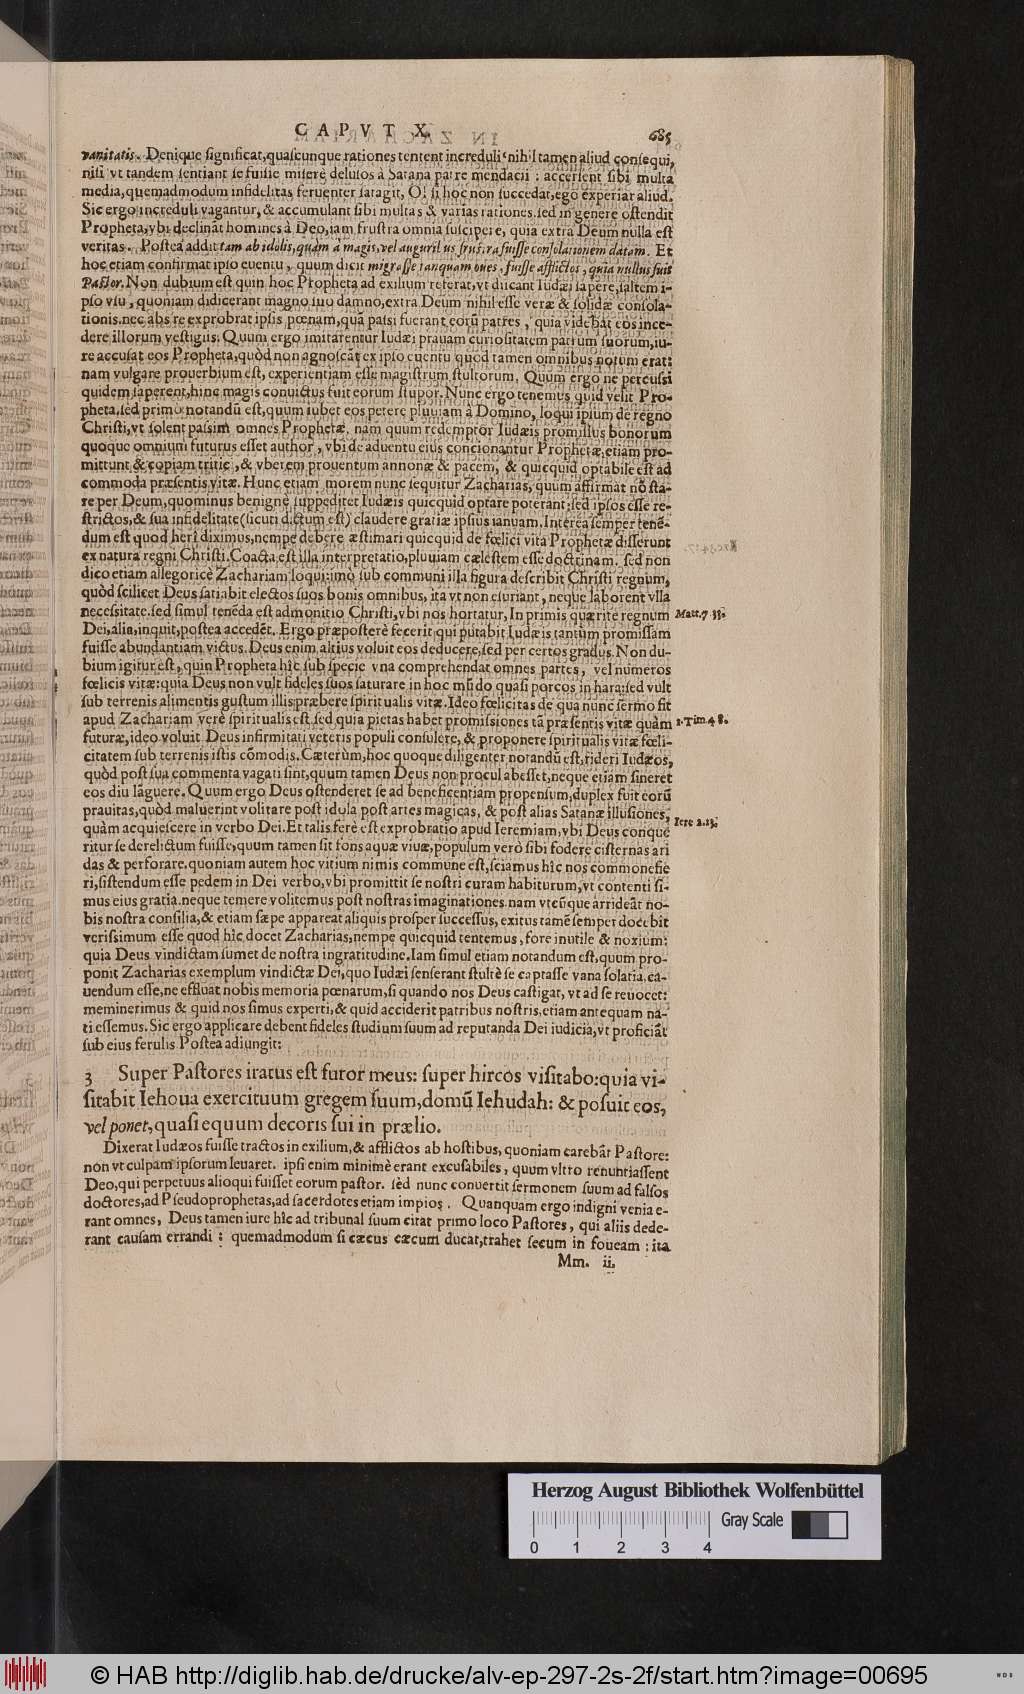 CAPVT X.
685
vanitatis. Denique significat, quascunque rationes tentent increduli nihil tamen aliud consequi,
nisi vt tandem sentiant se fuisse miserè delusos à Satana patre mendacii : accersent sibi multa
media, quemadmodum infidelitas feruenter satagit, O! si hoc non succedat, ego experiar aliud.
Sic ergo increduli vagantur, & accumulant sibi multas & varias rationes. sed in genere ostendit
Propheta, vbi declinãt homines à Deo, iam frustra omnia suscipere, quia extra Deum nulla est
veritas. Postea addit tam ab idolis, quàm à magis, vel auguribus frustra fuisse consolationem datam. Et
hoc etiam confirmat ipso euentu, quum dicit migrasse tanquam oues, fuisse afflictos, quia nullus fuit
Pastor. Non dubium est quin hoc Propheta ad exilium referat, vt discant Iudæi sapere, saltem i-
pso vsu, quoniam didicerant magno suo damno, extra Deum nihil esse veræ & solidæ consola-
tionis. nec abs re exprobrat ipsis pœnam, quã passi fuerant eorũ patres, quia videbãt eos ince-
dere illorum vestigiis. Quum ergo imitarentur Iudæi prauam curiositatem patrum suorum, iu-
re accusat eos Propheta, quòd non agnoscãt ex ipso euentu quod tamen omnibus notum erat:
nam vulgare prouerbium est, experientiam esse magistrum stultorum. Quum ergo ne percussi
quidem saperent, hinc magis conuictus fuit eorum stupor. Nunc ergo tenemus quid velit Pro-
pheta. sed primò notandũ est, quum iubet eos petere pluuiam à Domino, loqui ipsum de regno
Christi, vt solent passim omnes Prophetæ. nam quum redemptor Iudæis promissus bonorum
quoque omnium futurus esset author, vbi de aduentu eius concionantur Prophetæ, etiam pro-
mittunt & copiam tritici, & vberem prouentum annonæ & pacem, & quicquid optabile est ad
commoda præsentis vitæ. Hunc etiam morem nunc sequitur Zacharias, quum affirmat nõ sta-
re per Deum, quominus benignè suppeditet Iudæis quicquid optare poterant: sed ipsos esse re-
strictos, & sua infidelitate (sicuti dictum est) claudere gratiæ ipsius ianuam. Interea semper tenẽ-
dum est quod heri diximus, nempe debere æstimari quicquid de fœlici vita Prophetæ disserunt
ex natura regni Christi. Coacta est illa interpretatio, pluuiam cælestem esse doctrinam. sed non
dico etiam allegoricè Zachariam loqui: imò sub communi illa figura describit Christi regnum,
quòd scilicet Deus satiabit electos suos bonis omnibus, ita vt non esuriant, neque laborent vlla
necessitate. sed simul tenẽda est admonitio Christi, vbi nos hortatur, In primis quærite regnum
Matt. 7. 33.
Dei, alia, inquit, postea accedẽt. Ergo præposterè fecerit qui putabit Iudæis tantùm promissam
fuisse abundantiam victus. Deus enim altius voluit eos deducere, sed per certos gradus. Non du-
bium igitur est, quin Propheta hîc sub specie vna comprehendat omnes partes, vel numeros
fœlicis vitæ: quia Deus non vult fideles suos saturare in hoc mũdo quasi porcos in hara: sed vult
sub terrenis alimentis gustum illis præbere spiritualis vitæ. Ideo fœlicitas de qua nunc sermo fit
apud Zachariam verè spiritualis est. sed quia pietas habet promissiones tã præsentis vitæ quàm
1. Tim. 4 8.
futuræ, ideo voluit Deus infirmitati veteris populi consulere, & proponere spiritualis vitæ fœli-
citatem sub terrenis istis cõmodis. Cæterùm, hoc quoque diligenter notandũ est, rideri Iudæos,
quòd post sua commenta vagati sint, quum tamen Deus non procul abesset, neque etiam sineret
eos diu lãguere. Quum ergo Deus ostenderet se ad beneficentiam propensum, duplex fuit eorũ
prauitas, quòd maluerint volitare post idola post artes magicas, & post alias Satanæ illusiones,
quàm acquiescere in verbo Dei. Et talis ferè est exprobratio apud Ieremiam, vbi Deus conque
Iere 2. 13.
ritur se derelictum fuisse, quum tamen sit fons aquæ viuæ, populum verò sibi fodere cisternas ari
das & perforare. quoniam autem hoc vitium nimis commune est, sciamus hîc nos commonefie
ri, sistendum esse pedem in Dei verbo, vbi promittit se nostri curam habiturum, vt contenti si-
mus eius gratia. neque temere volitemus post nostras imaginationes. nam vtcũque arrideãt no-
bis nostra consilia, & etiam sæpe appareat aliquis prosper successus, exitus tamẽ semper docebit
verissimum esse quod hîc docet Zacharias, nempe quicquid tentemus, fore inutile & noxium:
quia Deus vindictam sumet de nostra ingratitudine. Iam simul etiam notandum est, quum pro-
ponit Zacharias exemplum vindictæ Dei, quo Iudæi senserant stultè se captasse vana solatia, ca-
uendum esse, ne effluat nobis memoria pœnarum, si quando nos Deus castigat, vt ad se reuocet:
meminerimus & quid nos simus experti, & quid acciderit patribus nostris, etiam antequam na-
ti essemus. Sic ergo applicare debent fideles studium suum ad reputanda Dei iudicia, vt proficiãt
sub eius ferulis Postea adiungit:
3 Super Pastores iratus est furor meus: super hircos visitabo: quia vi-
sitabit Iehoua exercituum gregem suum, domũ Iehudah: & posuit eos,
vel ponet, quasi equum decoris sui in prælio.
Dixerat Iudæos fuisse tractos in exilium, & afflictos ab hostibus, quoniam carebãt Pastore:
non vt culpam ipsorum leuaret. ipsi enim minimè erant excusabiles, quum vltro renuntiassent
Deo, qui perpetuus alioqui fuisset eorum pastor. sed nunc conuertit sermonem suum ad falsos
doctores, ad Pseudoprophetas, ad sacerdotes etiam impios. Quanquam ergo indigni venia e-
rant omnes, Deus tamen iure hîc ad tribunal suum citat primo loco Pastores, qui aliis dede-
rant causam errandi : quemadmodum si cæcus cæcum ducat, trahet secum in foueam : ita
Mm. ii.
Herzog August Bibliothek Wolfenbüttel
Gray Scale
0 1 2 3 4
© HAB http://diglib.hab.de/drucke/alv-ep-297-2s-2f/start.htm?image=00695